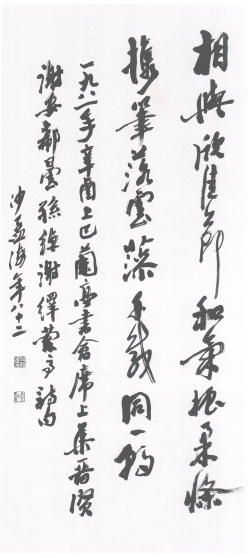 相與欣佳節和氣振柔條
攜筆落雲藻千載同一朝
一九八一年辛酉上巳蘭亭書會席上集晉賢
謝安郗曇孫綽謝繹蘭亭詩句
沙孟海年八十二